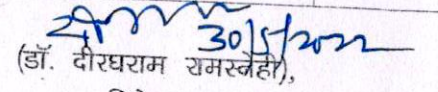 30/5/2022
(डॉ. दीरघराम रामस्नेही),